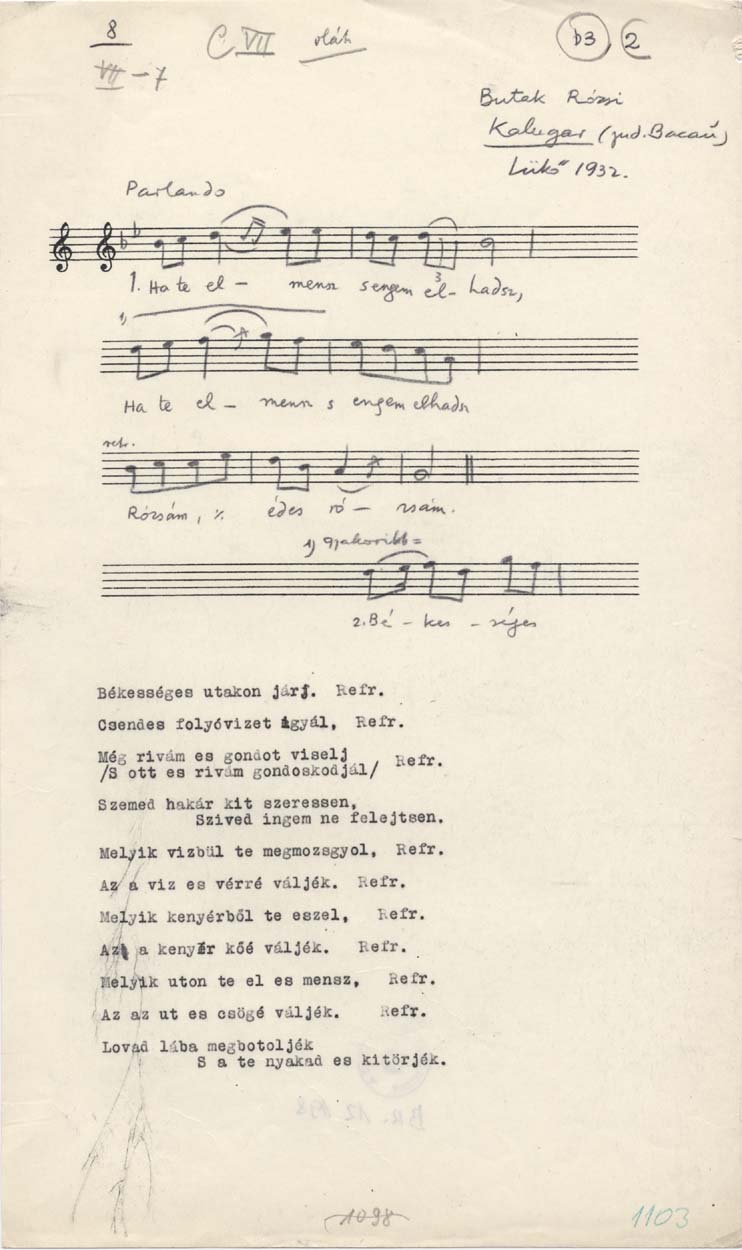 8
VII - 7
C VII oláh
b3, 2
Butak Rózsi
Kalugar (jud. Bacău)
Lükő 1932.
Parlando
1. Ha te el - mensz sengem el - hadsz,
3
1)
Ha te el - mensz s engem elhadsz
refr.
Rózsám, ٪ édes ró - zsám.
1) gyakoribb =
2. Bé - kes - séges
Békességes utakon járj. Refr.
Csendes folyóvizet igyál, Refr.
Még rivám es gondot viselj
/S ott es rivám gondoskodjál/ Refr.
Szemed hakár kit szeressen,
Szived ingem ne felejtsen.
Melyik vizbül te megmozsgyol, Refr.
Az a viz es vérré váljék. Refr.
Melyik kenyérből te eszel, Refr.
Az a kenyér kőé váljék. Refr.
Melyik uton te el es mensz, Refr.
Az az ut es csögé váljék. Refr.
Lovad lába megbotoljék
S a te nyakad es kitörjék.
1098
1103